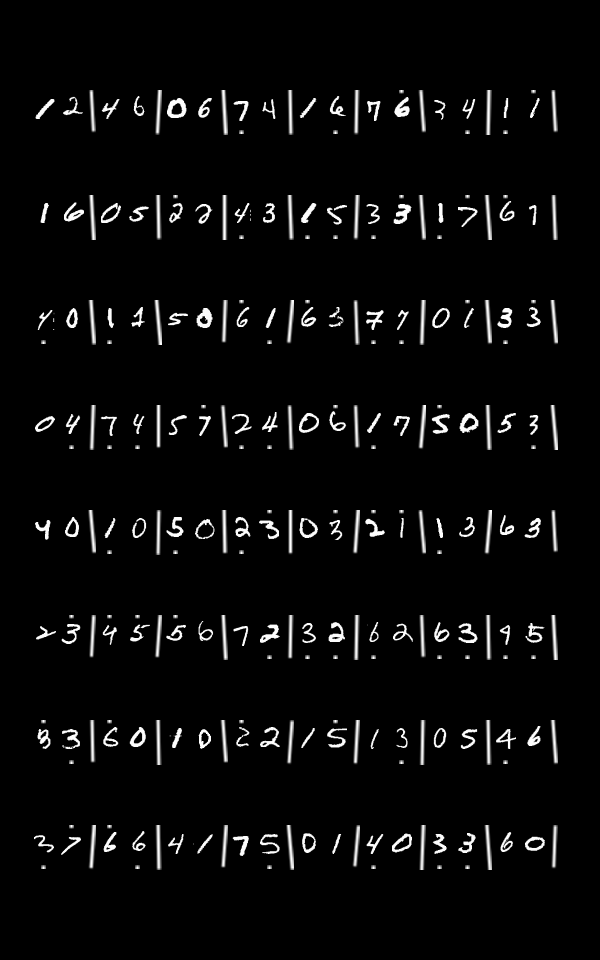 1 2 | 4 6 | 0 6 | 7̣ 4 | 1 6̣ | 7 6̇ | 3 4̣ | 1̣ 1̇ |
1 6 | 0 5 | 2̇ 2 | 4̣ 3 | 1̣ 5̣ | 3̣ 3̇ | 1̣ 7 | 6̇ 1 |
4̣ 0 | 1̣ 1 | 5 0 | 6̇ 1̣ | 6̇ 3̇ | 7̣ 7̣ | 0 1̇ | 3̣ 3̇ |
0 4̣ | 7̣ 4̣ | 5 7̇ | 2̣ 4̣ | 0 6̇ | 1̣ 7 | 5̇ 0 | 5 3̣ |
4 0 | 1̣ 0 | 5̣ 0 | 2̣ 3̇ | 0 3̇ | 2̇ 1̇ | 1̣ 3 | 6 3 |
2 3̇ | 4̇ 5̇ | 5̇ 6 | 7 2̣ | 3̣ 2̣ | 6̣ 2 | 6̣ 3̣ | 4̣ 5̣ |
3̇ 3̣ | 6̇ 0 | 1̇ 0 | 2̇ 2 | 1 5̇ | 1 3̣ | 0 5 | 4̣ 6 |
3̣ 7̇ | 6̇ 6̣ | 4 1 | 7 5̣ | 0 1 | 4̣ 0 | 3̣ 3̣ | 6 0 |